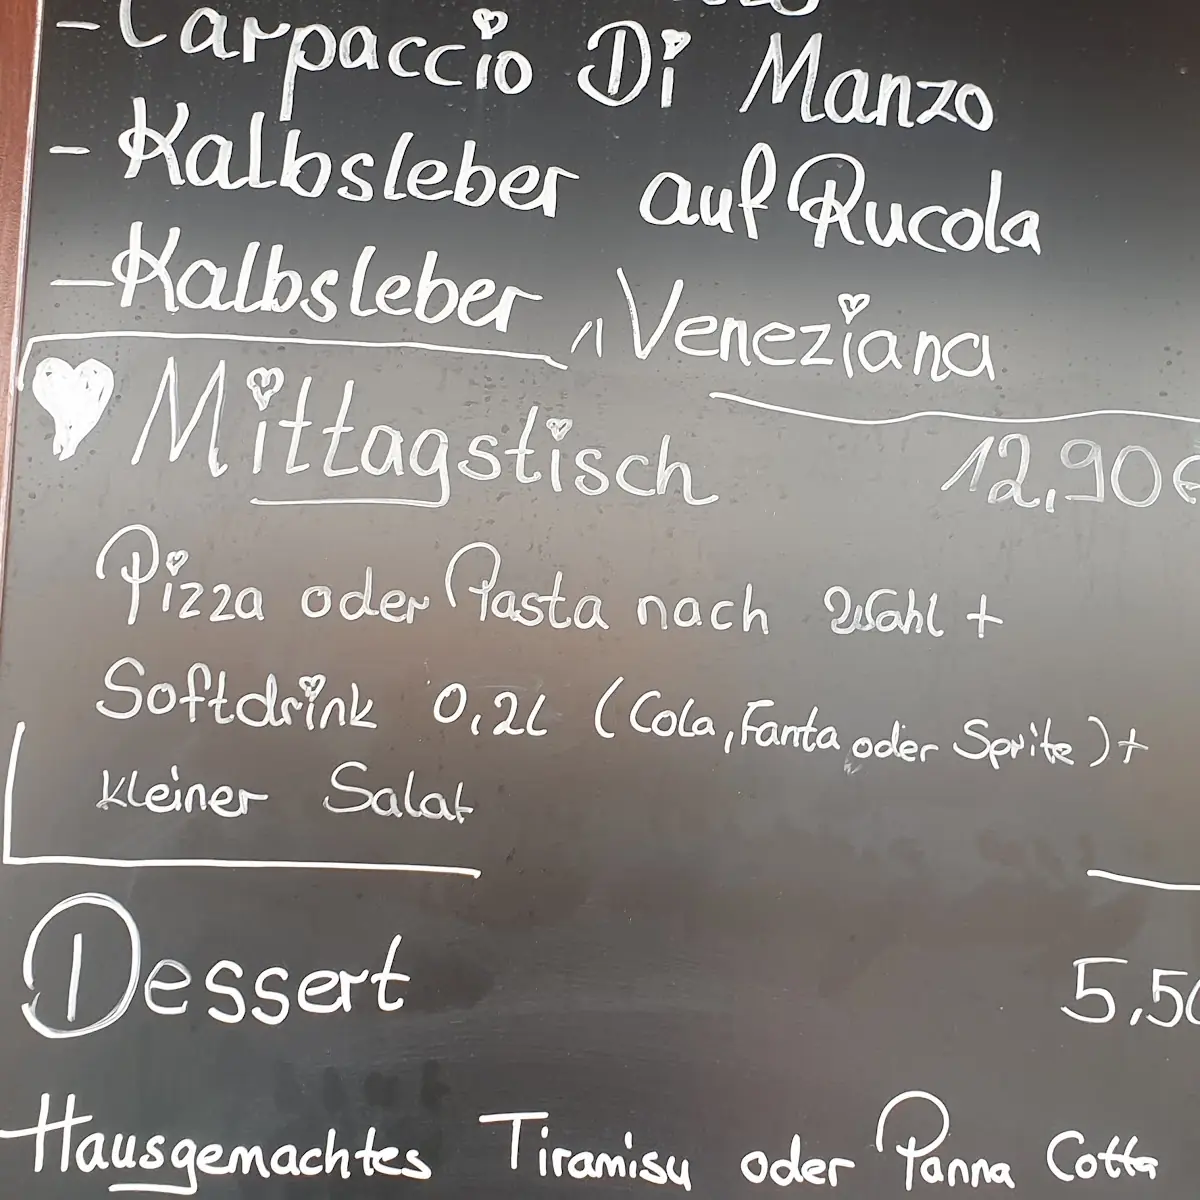 - Carpaccio Di Manzo
- Kalbsleber auf Rucola
- Kalbsleber " Veneziana
Mittagstisch 12,90€
Pizza oder Pasta nach Wahl +
Softdrink 0,2l (Cola, Fanta oder Sprite) +
kleiner Salat
Dessert 5,50
Hausgemachtes Tiramisu oder Panna Cotta